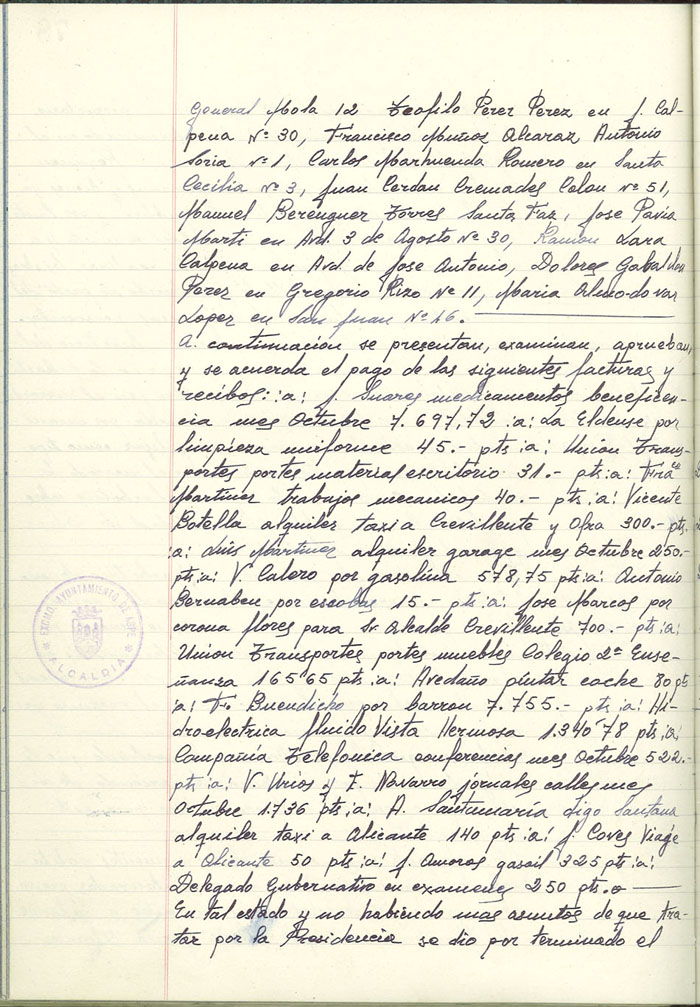 General Mola 12 Teofilo Perez Perez en J. Cal-
pena Nº 30, Francisco Muñoz Alcaraz Antonio
Soria Nº 1, Carlos Marhuenda Romero en Santa
Cecilia Nº 3, Juan Cerdan Cremades Colon Nº 51,
Manuel Berenguer Torres Santa Faz, Jose Pavia
Marti en Avd. 3 de Agosto Nº 30, Ramon Lara
Calpena en Avd. de Jose Antonio, Dolores Gabaldon
Perez en Gregorio Rizo Nº 11, Maria Almo-do var
Lopez en San Juan Nº 46.
A. continuacion se presentan, examinan, aprueban,
y se acuerda el pago de las siguientes facturas y
recibos: :a: J. Suares medicamentos beneficen-
cia mes Octubre 7.697,72 :a: La Eldense por
limpieza uniforme 45.- pts :a: Union Trans-
portes portes material escritorio 31.- pts :a: Frac
Martinez trabajos mecanicos 40.- pts :a: Vicente
Botella alquiler taxi a Crevillente y Ofra 300.- pts.
:a: Luis Martinez alquiler garage mes Octubre 250.-
pts :a: V. Calero por gasolina 578,75 pts :a: Antonio
Bernabeu por escobas 15.- pts :a: Jose Marcos por
corona flores para Sr. Alcalde Crevillente 700.- pts :a:
Union Transportes portes muebles Colegio 2ª Ense-
ñanza 165'65 pts :a: Avedaño pintar coche 80 pts
:a: Fº Buendicho por barron 7.755.- pts :a: Hi-
droelectrica fluido Vista Hermosa 1.340'78 pts :a:
Compañia Telefonica conferencias mes Octubre 522.-
pts :a: V. Urios y F. Navarro jornales calles mes
Octubre 1.736 pts :a: A. Santamaría digo Santana
alquiler taxi a Alicante 140 pts :a: J. Coves Viage
a Alicante 50 pts :a: J. Amoros gasoil 325 pts :a:
Delegado Gubernativo en examenes 250 pts.
En tal estado y no habiendo mas asuntos de que tra-
tar por la Presidencia se dio por terminado el
EXCMO. AYUNTAMIENTO DE ASPE
ALCALDIA